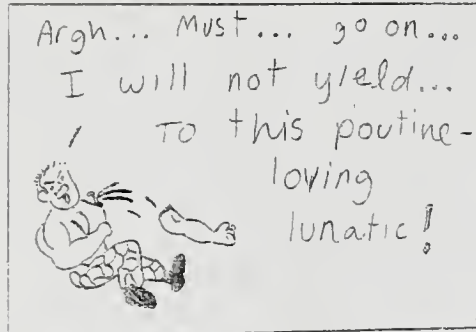 Argh... Must... go on...
I will not yield...
To this poutine-
loving
lunatic!